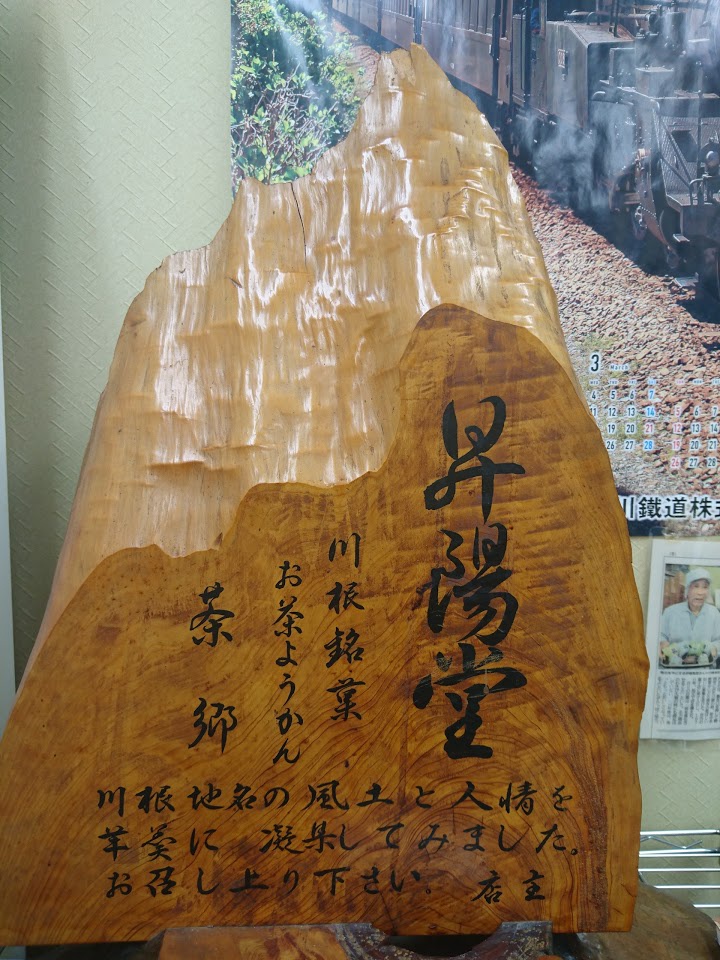 昇陽堂
川根銘菓
お茶ようかん
茶郷
川根地名の風土と人情を
羊羹に凝集してみました。
お召し上り下さい。 店主
3 March
4 5 6 7
11 12 13 14
19 20 21
26 27 28
川鐵道株